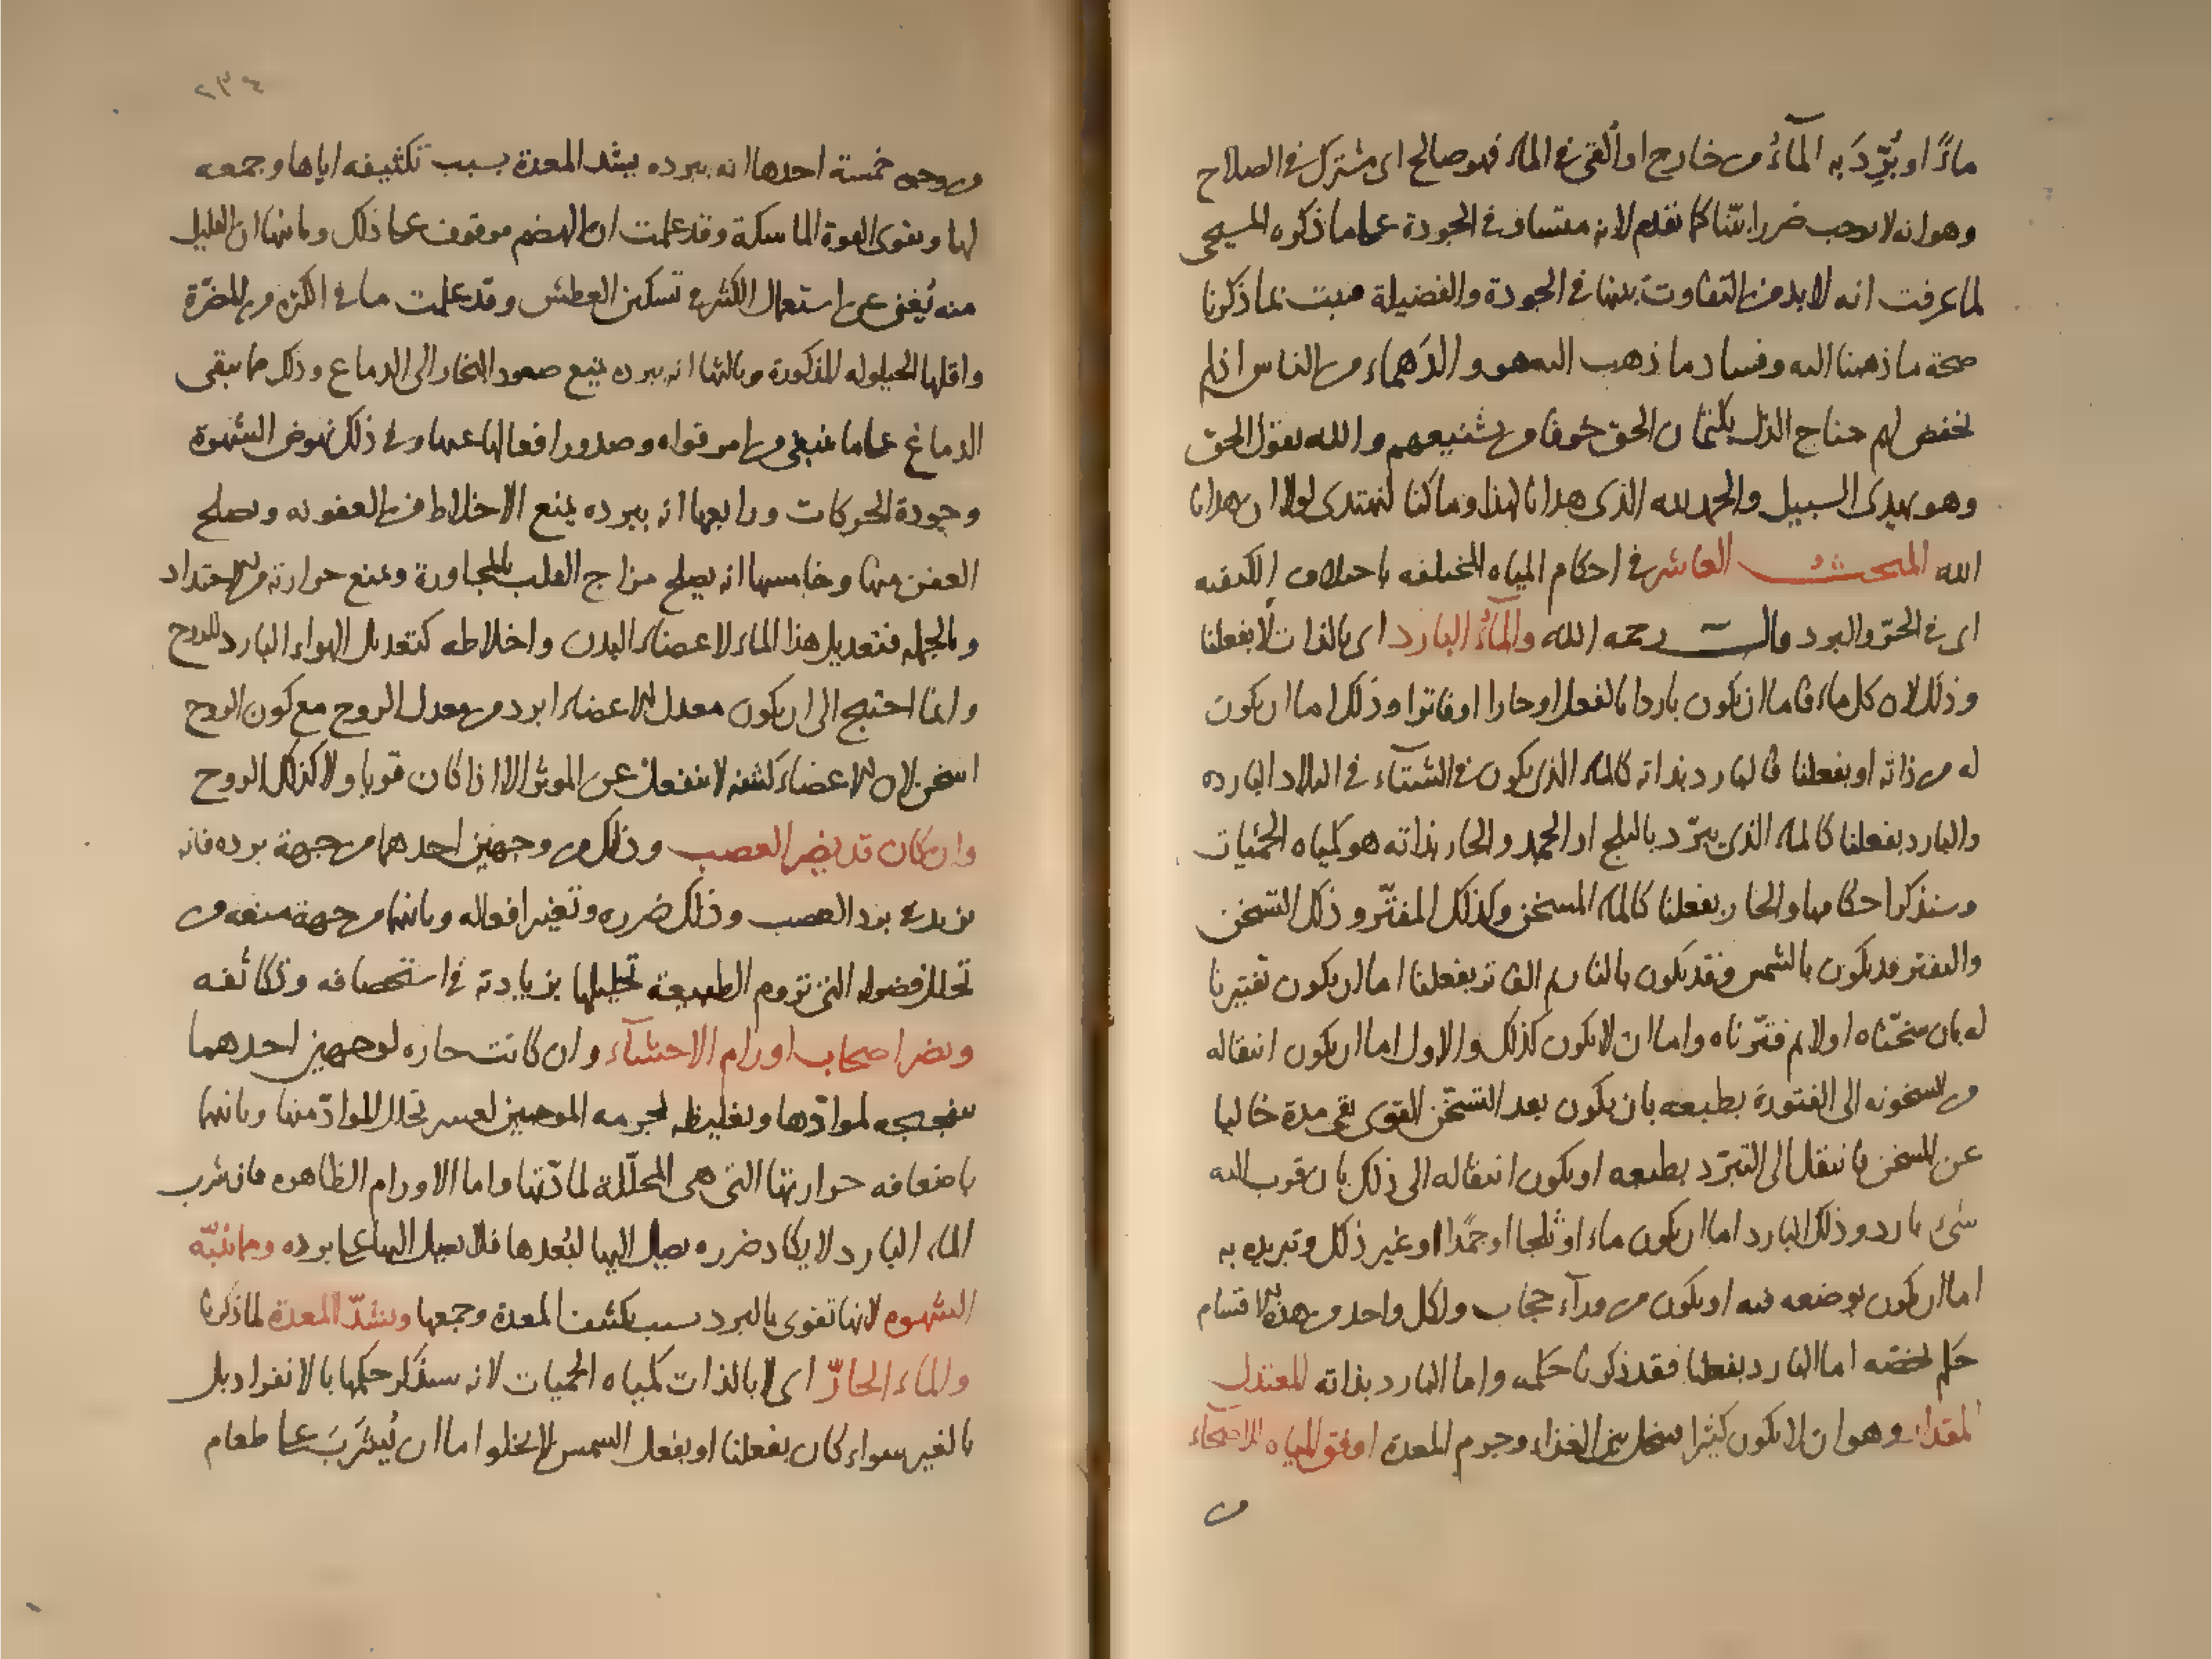 ماءً او بُرِّدَ به المآءُ من خارج او أُلقى فى الماء فهو صالح اى مشترك فى الصلاح
وهو انه لا يوجب ضررا بيّنا كما تقدم لا انه متساو فى الجودة على ما ذكره المسيحى
لما عرفت انه لا بد من التفاوت بينها فى الجودة والفضيلة فثبت بما ذكرنا
صحة ما ذهبنا اليه وفساد ما ذهب اليه هو والدَهماء من الناس اذ لم
نخفض لهم جناح الذل بكتمان الحق خوفا من تشنيعهم والله يقول الحق
وهو يهدى السبيل والحمد لله الذى هدانا لهذا وما كنا لنهتدى لولا ان هدانا
الله المبحث العاشر فى احكام المياه المختلفه باختلاف الكيفيه
اى فى الحرّ والبرد قال رحمه الله والمآءُ البارد اى بالذات لا بفعلنا
وذلك لان كل ماء فاما ان يكون باردا بالفعل او حارا او فاترا وذلك اما ان يكون
له من ذاته او بفعلنا فالبارد بذاته كالماء الذى يكون فى الشتآء فى البلاد البارده
والبارد بفعلنا كالماء الذى يبرّد بالثلج او الجمد والحار بذاته هو كمياه الحمّيات
وسنذكر احكامها والحار بفعلنا كالماء المسخن وكذلك المفتّر وذلك التسخن
والتفتر قد يكون بالشمس وقد يكون بالنار ثم الفاتر بفعلنا اما ان يكون تفتيرنا
له بان سخّناه اولا ثم فتّرناه واما ان لا يكون كذلك والاول اما ان يكون انتقاله
من السخونه الى الفتورة بطبعه بان يكون بعد التسخّن القوى بقى مدة خاليا
عن المسخن فانتقل الى التبرّد بطبعه او يكون انتقاله الى ذلك بان قرب اليه
شىء بارد وذلك البارد اما ان يكون ماء او ثلجا او جمدًا او غير ذلك وتبريده به
اما ان يكون بوضعه فيه او يكون من ورآء حجاب ولكل واحد من هذه الاقسام
حكم يخصّه اما البارد بفعلنا فقد ذكرنا حكمه واما البارد بذاته المعتدل
المقدار وهو ان لا يكون كثيرا يحلل بين الغذاء وجرم المعدة اوفق المياه للاصحآء
من
من وجوه خمسة احدها انه ببرده يشد المعدة بسبب تكثيفه اياها وجمعه
لها ويقوى القوة الماسكة وقد علمت ان الهضم موقوف على ذلك وثانيها ان القليل
منه يُغنى عن استعمال الكثير فى تسكين العطش وقد علمت ما فى اكثره من المضرّة
واقلها الحيلوله المذكورة وثالثها انه ببرده يمنع صعود البخار الى الدماغ وذلك مما يبقى
الدماغ على ما ينبغى من امر قواه وصدور افعالها عنها وفى ذلك نهوض الشهوة
وجودة الحركات ورابعها انه ببرده يمنع الاخلاط من العفونه ويصلح
العفن منها وخامسها انه يصلح مزاج القلب بالمجاورة ويمنع حرارته من الاحتداد
وبالجمله فتعديل هذا الماء لاعضاء البدن واخلاطه كتعديل الهواء البارد للروح
وانما احتيج الى ان يكون معدل الاعضاء ابرد من معدل الروح مع كون الروح
اسخن لان الاعضاء كثيفه لا تنفعل عن الموثر الا اذا كان قويا ولا كذلك الروح
وان كان قد يضر العصب وذلك من وجهين احدهما من جهة برده فانه
يزيد فى برد العصب وذلك ضرره وتغير افعاله وثانيهما من جهة منعه من
تحلل فضوله التى تروم الطبيعة تحليلها بزيادته فى استحصافه وتكاثفه
ويضر اصحاب اورام الاحشآء وان كانت حاره لوجهين احدهما
تفجيجه لموادّها وتغليظه لجرمه الموجبين لعسر تحلل الموادّ منها وثانيهما
باضعافه حرارتها التى هى المحلّلة لمادّتها واما الاورام الظاهره فان شرب
الماء البارد لا يكاد ضرره يصل اليها لبُعدها فلا يصل اليها على برده ومما ينبّه
الشهوه لانها تقوى بالبرد بسبب تكثيف المعدة وجمعها ويشدّ المعدة لما ذكرنا
والماء الحارّ اى لا بالذات كمياه الحميات لانه سنذكر حكمها بالانفراد بل
بالغير سواء كان بفعلنا او بفعل الشمس لا يخلو اما ان يُشرَبَ على طعام